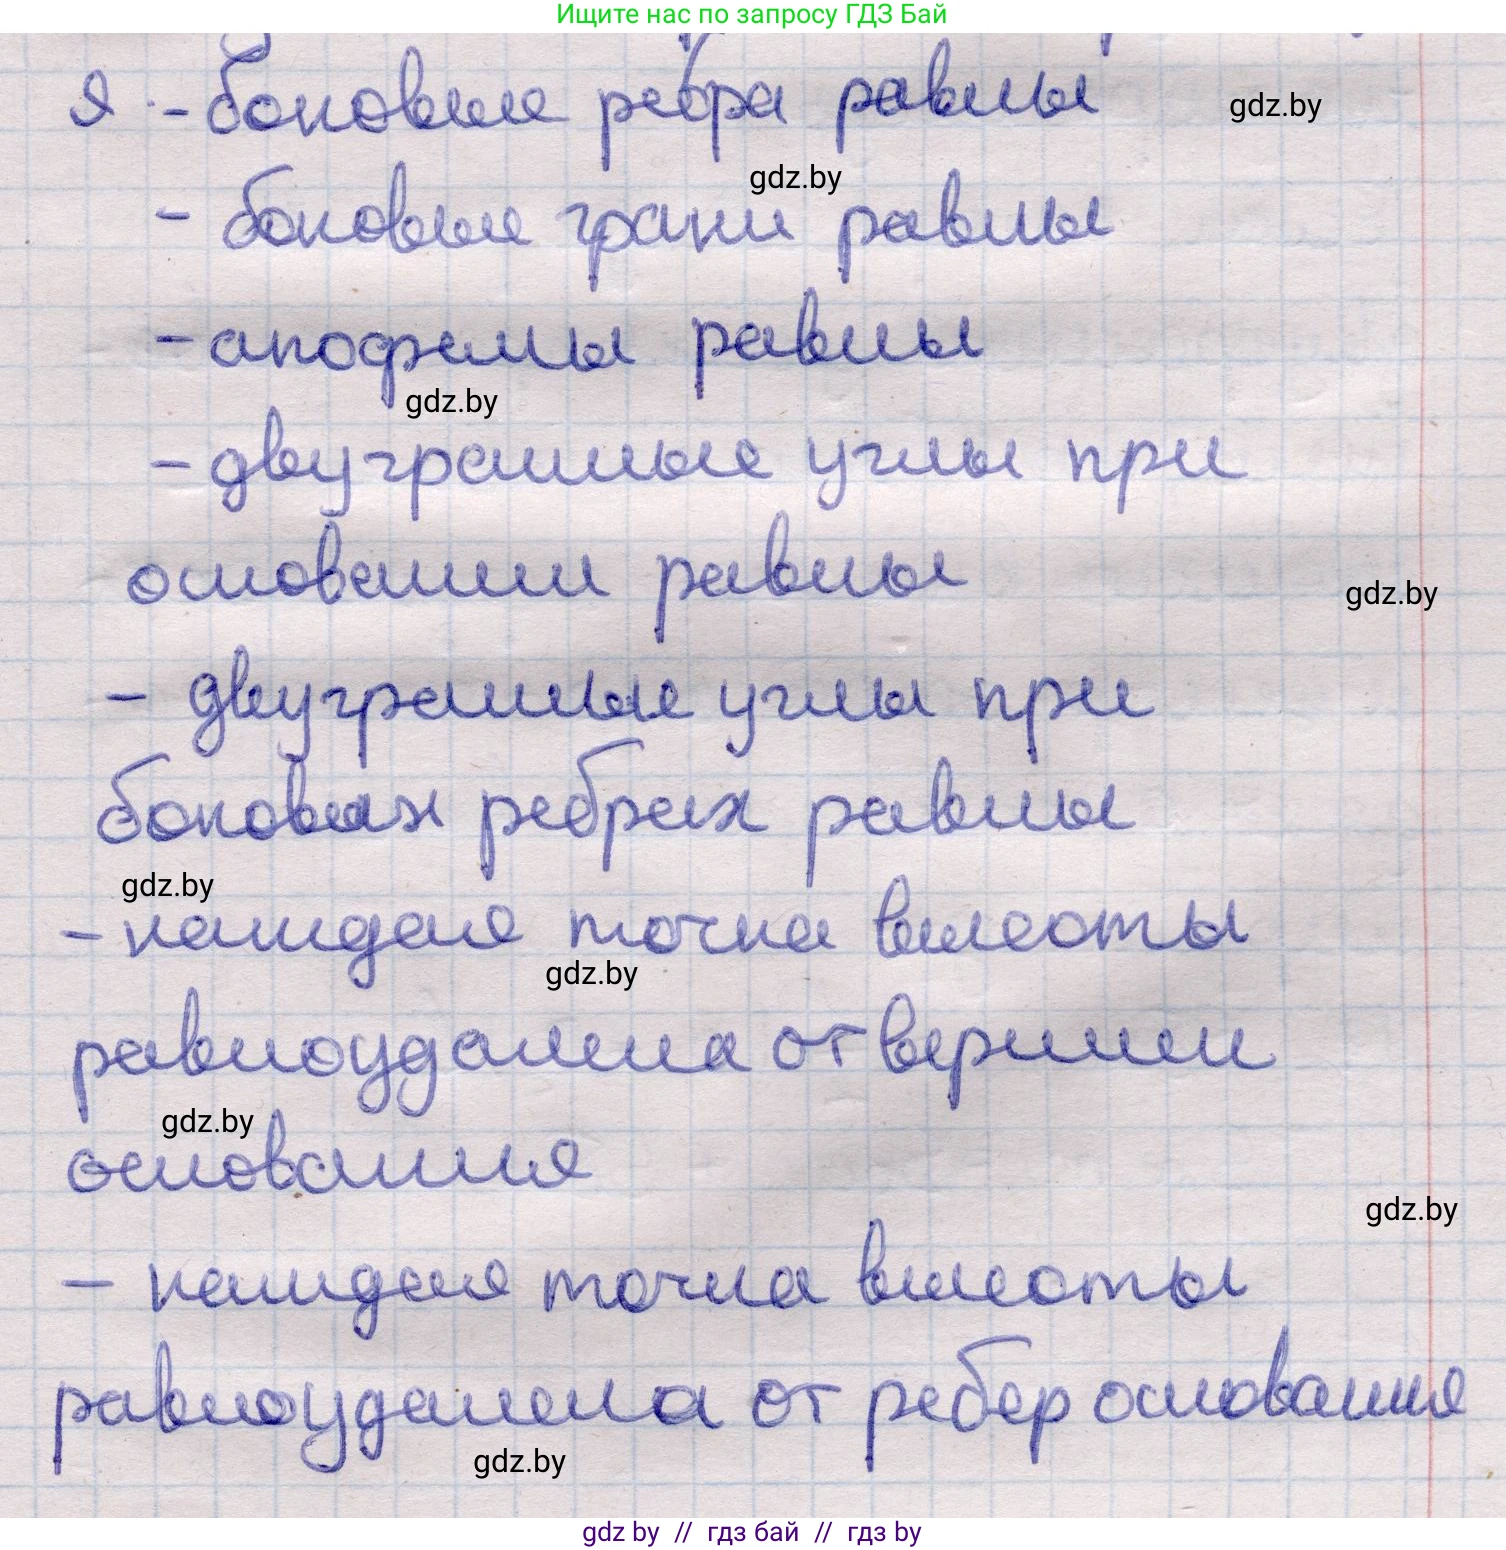 Ищите нас по запросу ГДЗ Бай
я - боковые ребра равны
gdz.by
gdz.by
- боковые грани равны
- апофемы равны
gdz.by
- двугранные углы при
основании равны
gdz.by
- двугранные углы при
боковых ребрах равны
gdz.by
- каждая точка высоты
gdz.by
равноудалена от вершин
gdz.by
основания
gdz.by
- каждая точка высоты
равноудалена от ребер основания
gdz.by
gdz by // гдз бай // гдз by